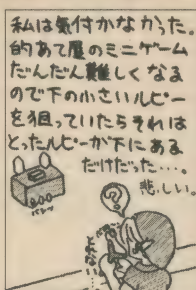 私は気付かなかった。
的あて屋のミニゲーム
だんだん難しくなる
ので下の小さいルピー
を狙っていたらそれは
とったルピーが下にある
だけだった…。
悲しい。
?